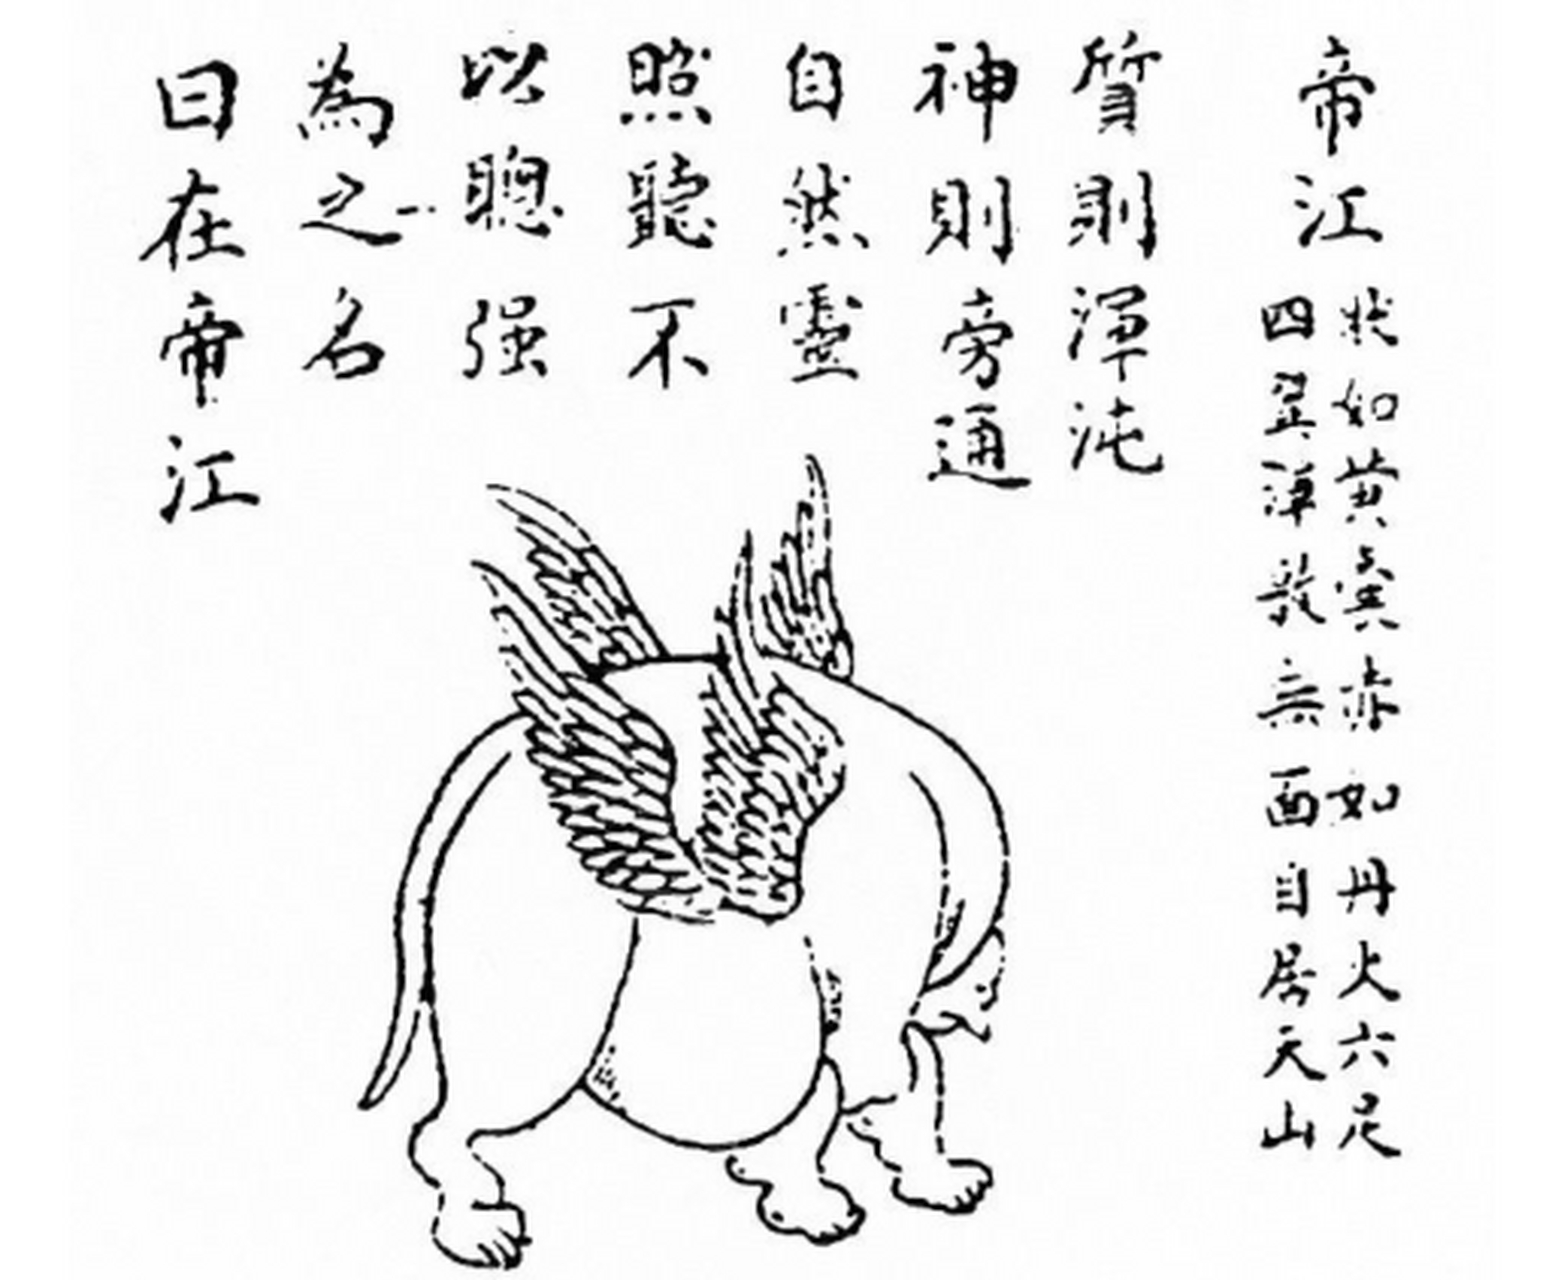 帝江
狀如黃囊赤如丹火六足
四翼渾敦無面自居天山
質則渾沌
神則旁通
自然靈
照聽不
以聰强
為之名
曰在帝江